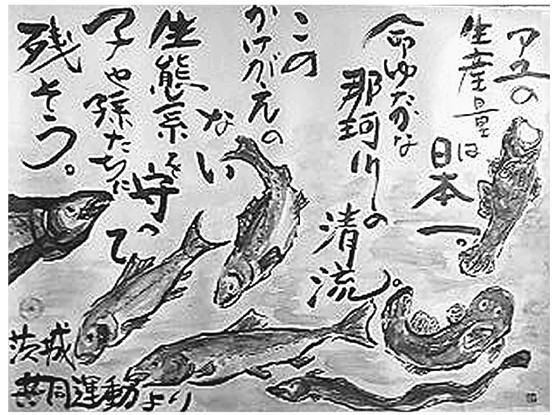 アユの
生産量は
日本一。
命ゆたかな
那珂川の
清流。
この
かけがえの
ない
生態系を守って
子や孫たちに
残そう。
茨城
共同運動より